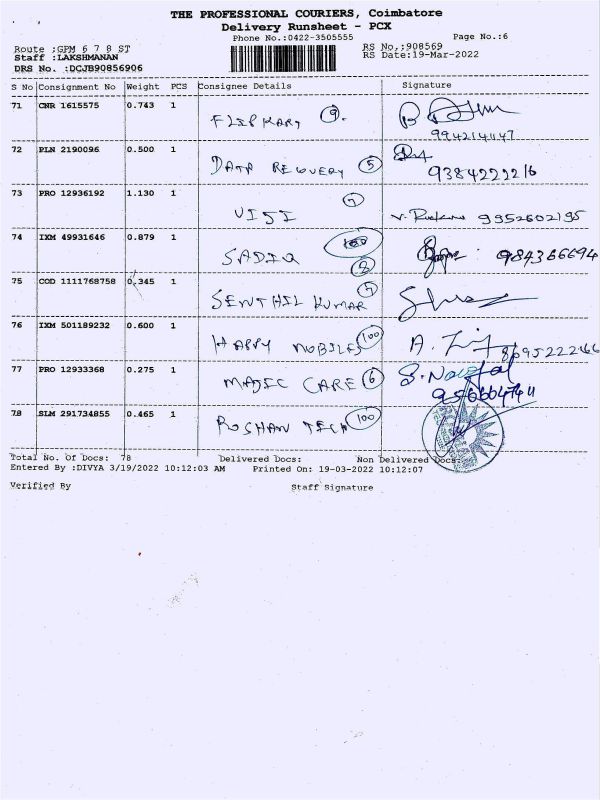 THE PROFESSIONAL COURIERS, Coimbatore
Delivery Runsheet - PCX
Phone No.:0422-3505555 Page No.:6
Route :GPM 6 7 8 ST RS No,:908569
Staff :LAKSHMANAN RS Date:19-Mar-2022
DRS No. :DCJB90856906
S No Consignment No Weight PCS Consignee Details Signature
71 CNR 1615575 0.743 1 FLIPKART 9.
9942141147
72 PLN 2190096 0.500 1 DATA RECOVERY 5
9384222216
73 PRO 12936192 1.130 1 VIJI 7 9952602195
74 IXM 49931646 0.879 1 SADIQ 8 984366694
75 COD 1111768758 0.345 1 SENTHIL KUMAR 7
76 IXM 501189232 0.600 1 HAPPY MOBILES 100 A. 8695222466
77 PRO 12933368 0.275 1 MAJIC CARE 6
9566647411
78 SLM 291734855 0.465 1 ROSHAN TECH 100
Total No. Of Docs: 78 Delivered Docs: Non Delivered Docs:
Entered By :DIVYA 3/19/2022 10:12:03 AM Printed On: 19-03-2022 10:12:07
Verified By Staff Signature